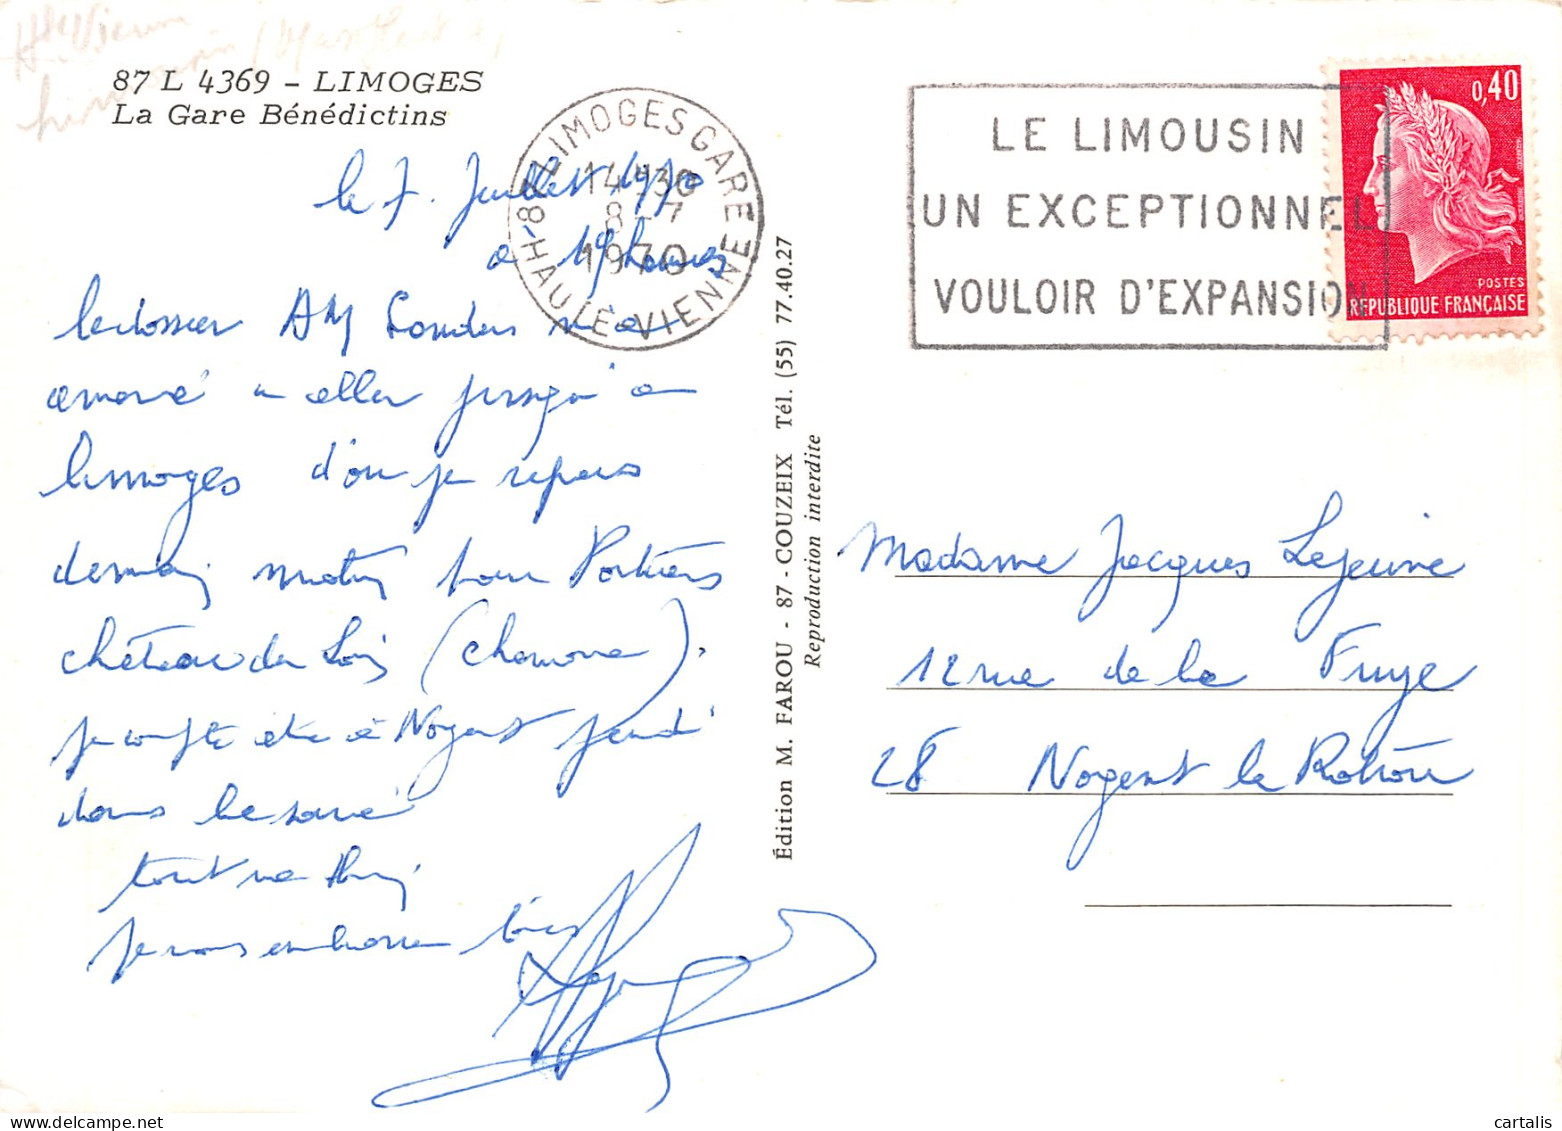 87 L 4369 - LIMOGES
La Gare Bénédictins
87 LIMOGES GARE
14H30
8 - 7
1970
HAUTE-VIENNE
LE LIMOUSIN
UN EXCEPTIONNEL
VOULOIR D'EXPANSION
0,40
POSTES
REPUBLIQUE FRANÇAISE
le 7. Juillet 1970
a 19 heures
le dossier AM
amené a aller jusqu'a
limoges d'ou je repars
demain matin pour
château du Loir
je compte être à Nogent jeudi
dans la soirée
tout va
je vous embrasse tous
Édition M. FAROU - 87 - COUZEIX Tél. (55) 77.40.27
Reproduction interdite
Madame Jacques Lejeune
12 rue de la Fuye
28 Nogent le Rotrou
cartalis
www.delcampe.net